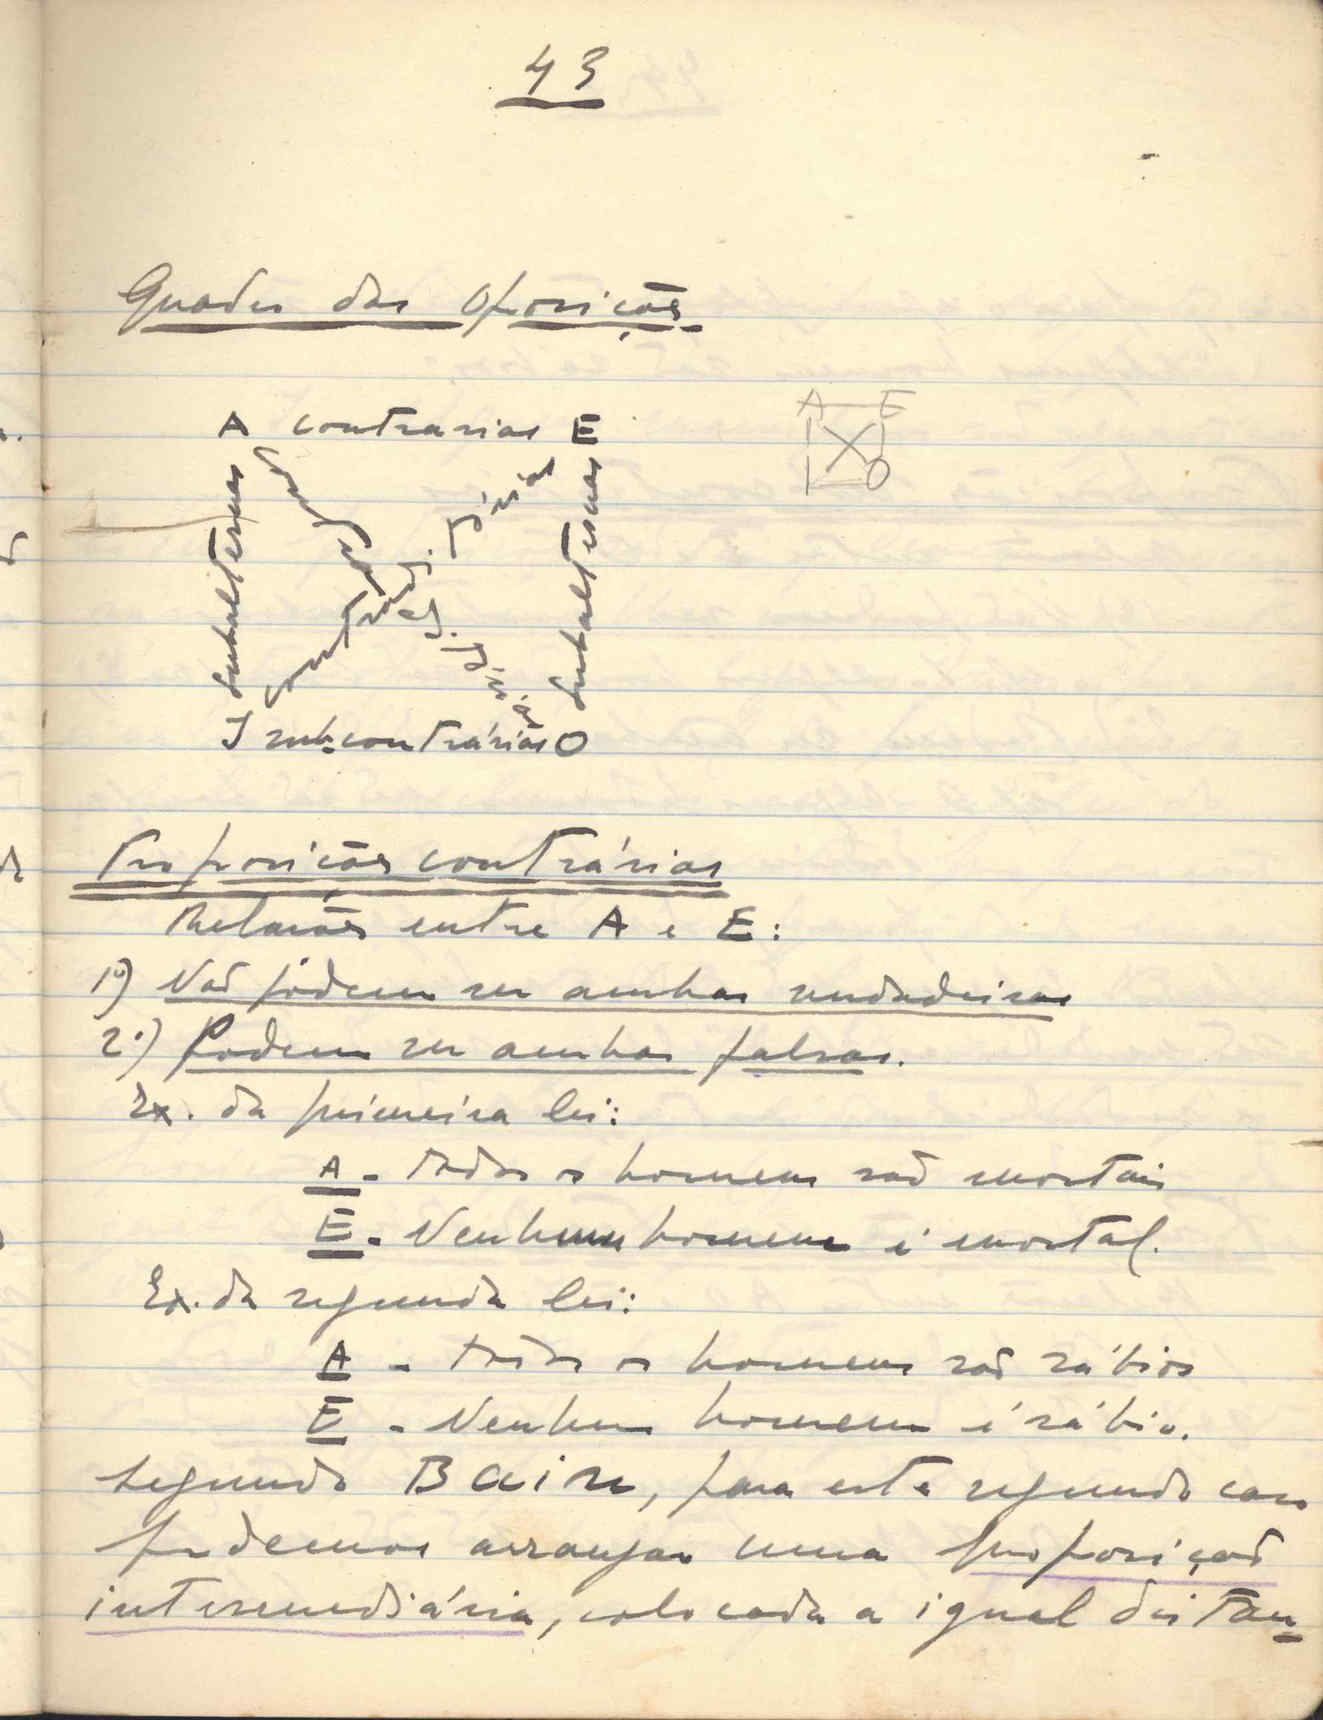 43
Quadro das Oposições
A contrarias E
A E
O
Subalternas
Subalternas
contraditórias
contraditórias
I sub-contrárias O
Proposições contrárias
Relações entre A e E:
1º) Não pódem ser ambas verdadeiras
2º) Podem ser ambas falsas.
Ex. da primeira lei:
A - todos os homens são mortais
E - Nenhum homem é mortal.
Ex. da segunda lei:
A - todos os homens são sábios
E - Nenhum homem é sábio.
Segundo Bain, para este segundo caso
podemos arranjar uma proposição
intermediária, colocada a igual distan-